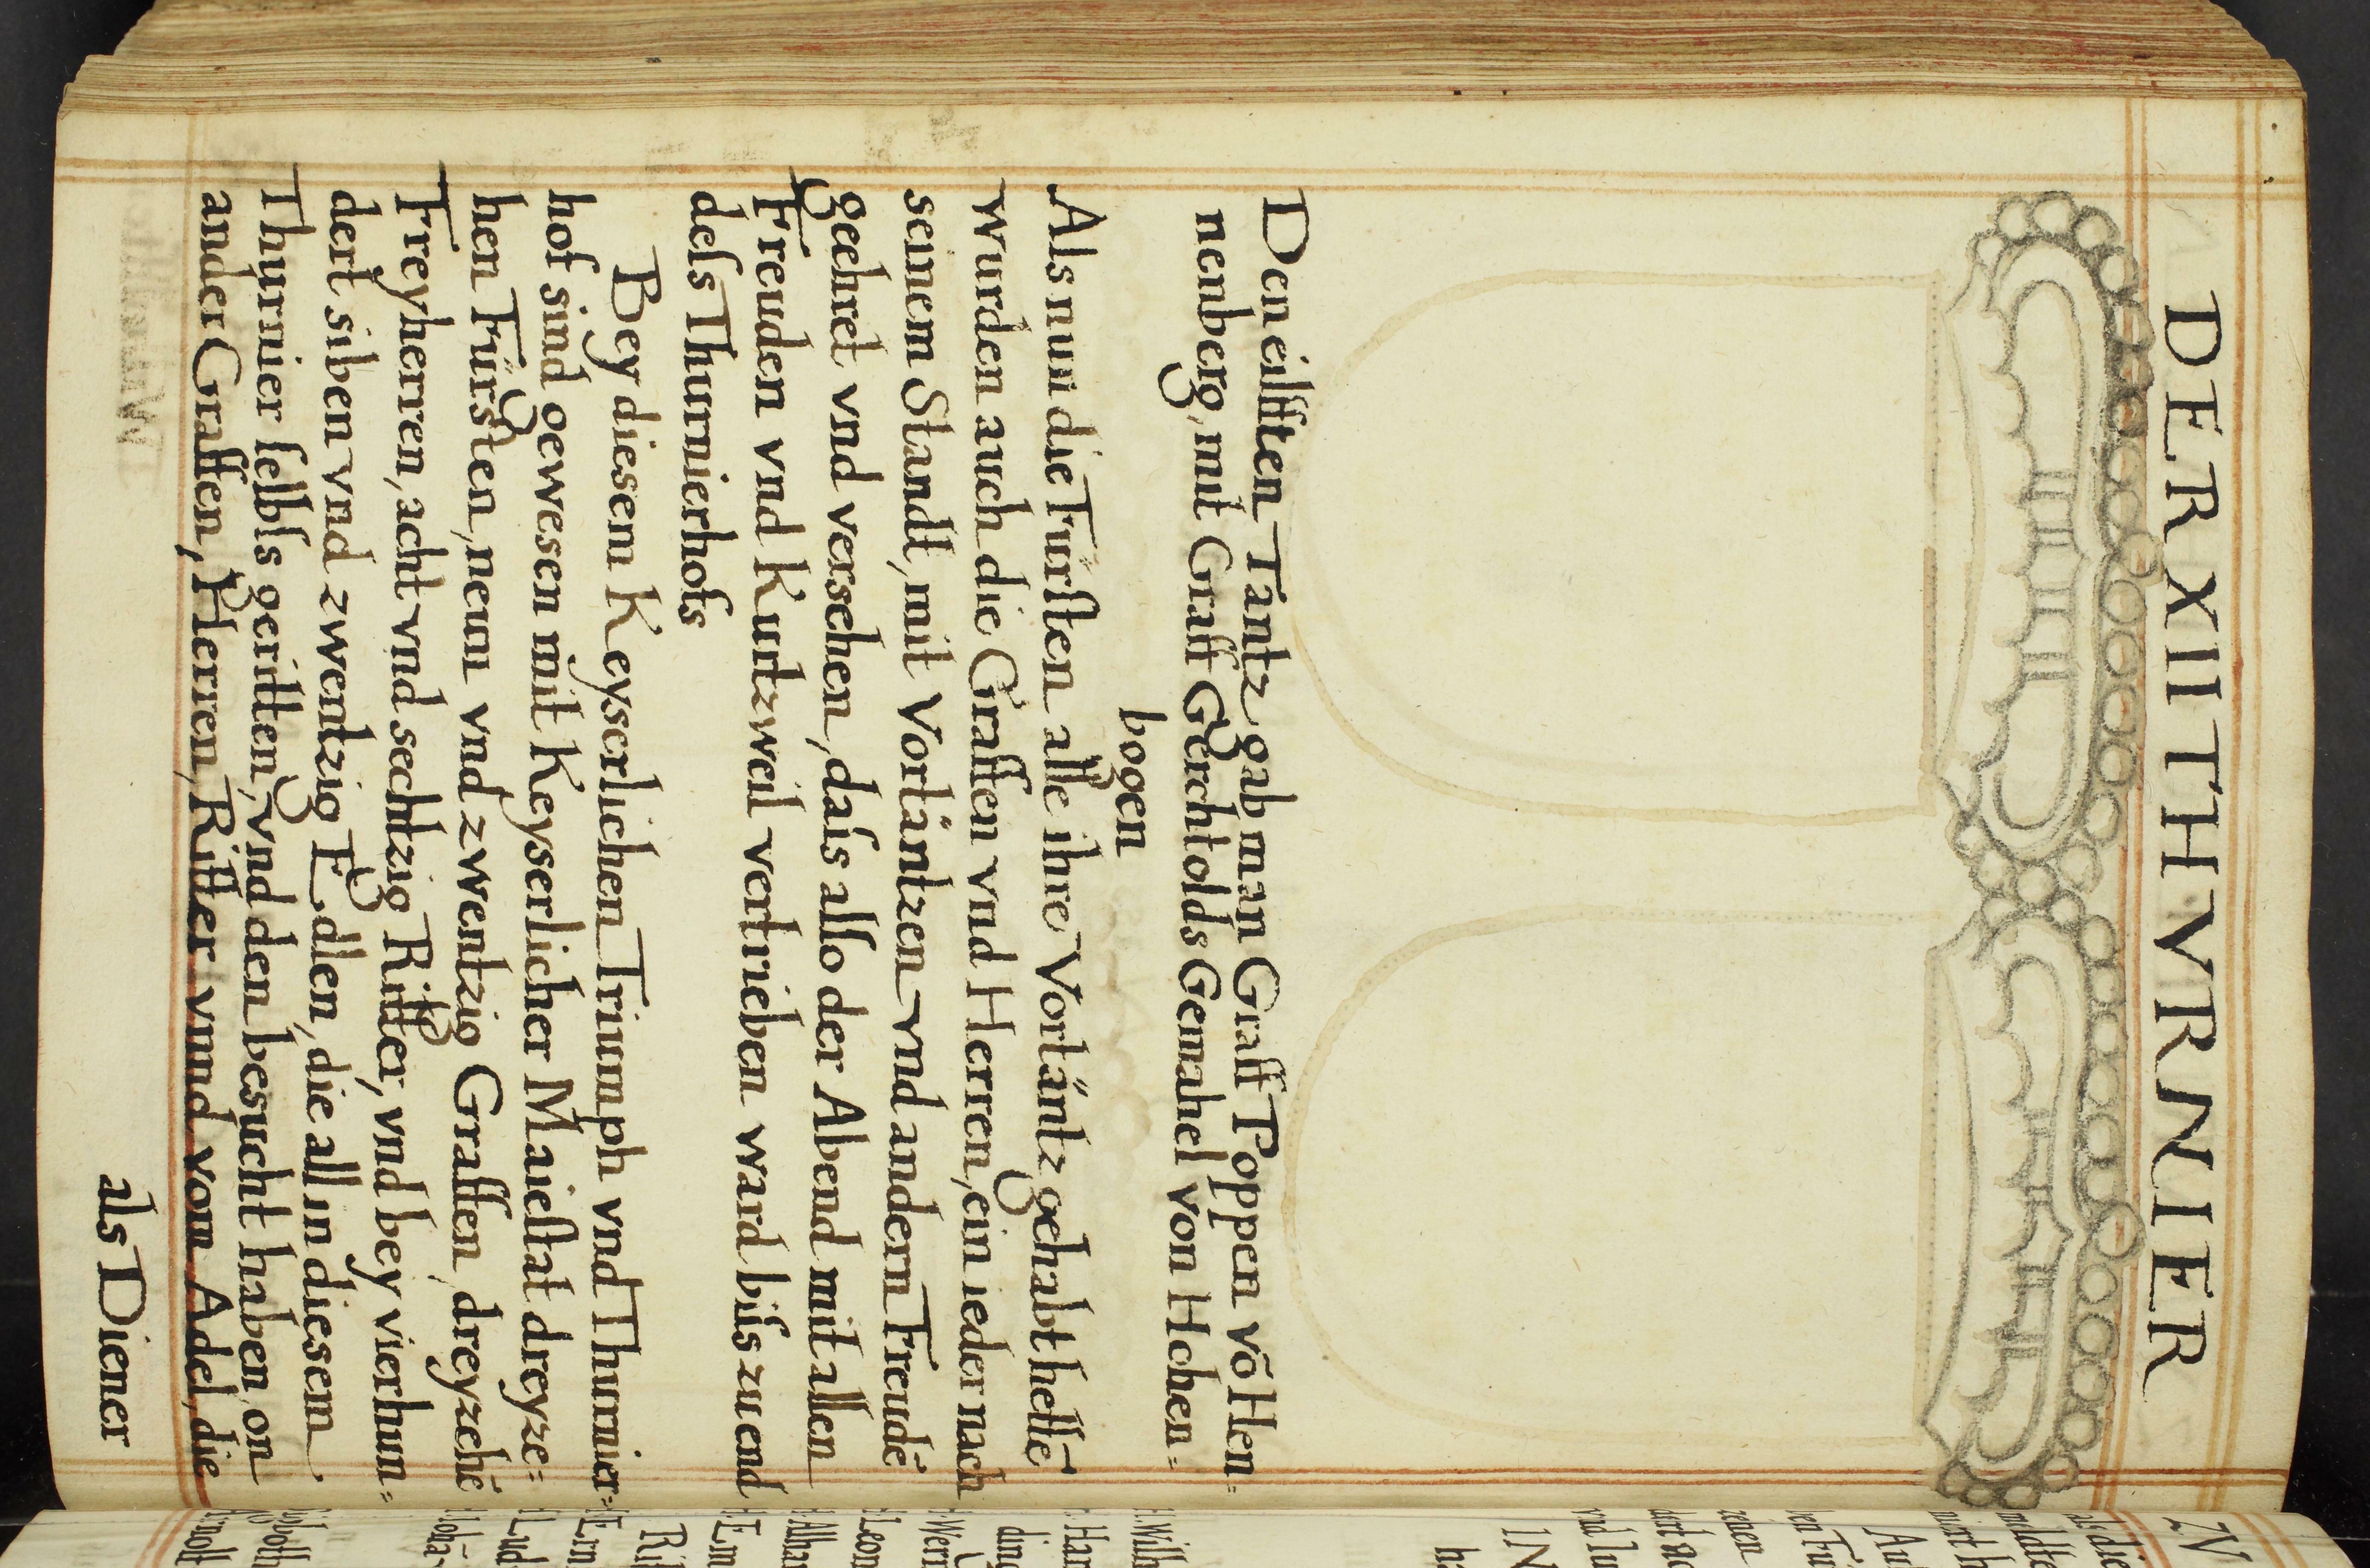 DER XII THVRNIER
Den eilfften Tantz gab man Graff Poppen võ Hen-
nenberg, mit Graff Gerchtolds Gemahel von Hohen-
bogen
Als nun die Fürsten alle ihre Vortäntz gehabt hettẽ
wurden auch die Graffen vnd Herren, ein ieder nach
seinem Standt, mit Vortäntzen vnd andern Freudẽ
geehret vnd versehen, dass also der Abend mit allen
Freuden vnd Kurtzweil vertrieben ward biss zu end
dess Thurnierhofs
Bey diesem Keyserlichen Triumph vnd Thurnier-
hof sind gewesen mit Keyserlicher Maiestat dreyze-
hen Fürsten, neun vnd zwentzig Graffen, dreyzehẽ
Freyherren, acht vnd sechtzig Ritter, vnd bey vierhun-
dert siben vnd zwentzig Edlen, die all in diesem
Thurnier selbs geritten, vnd den besucht haben, on
ander Graffen, Herren, Ritter vnnd vom Adel, die
als Diener
ZV